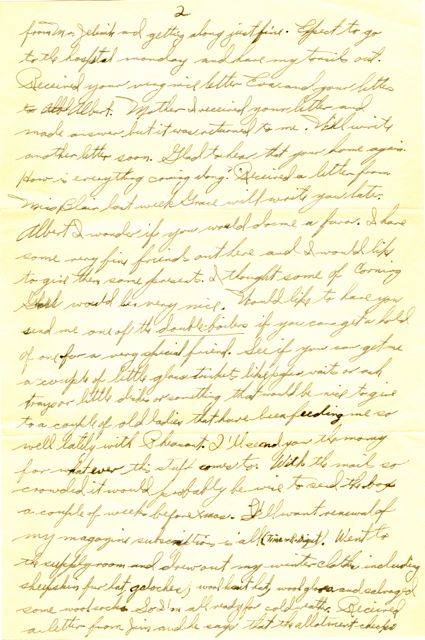 2
from Mr. and getting along just fine. Expect to go
to the hospital monday and have my tonsils out.
Received your very nice letter Eva and your letter
to Albert. Mother I received your letter and
made answer but it was returned to me. Will write
another letter soon. Glad to hear that your home again.
How is everything coming along? Received a letter from
Miss Blair last week Grace will write you later.
Albert I wonder if you would do me a favor. I have
some very fine friends out here and I would like
to give them some presents. I thought some of Corning
Glass would be very nice. Would like to have you
send me one of the double-boilers if you can get a hold
of one for a very special friend. See if you can get me
a couple of little glass trinkets, like or ash
trays or little dish or something that would be nice to give
to a couple of old ladies that have been feeding me so
well lately with Pheasant. I'll send you the money
for what ever the stuff comes to. With the mail so
crowded it would probably be wise to send the box
a couple of weeks before Xmas. I'll want renewal of
my magazine subscriptions is all (Time & Digest). Went to
the supply room and drew out my winter clothes including
sheepskin fur hat, galoches, wool knit hat, wool gloves and salvaged
some wool socks. So I'm all ready for cold weather. Received
a letter from Jim and he says that the allotment checks